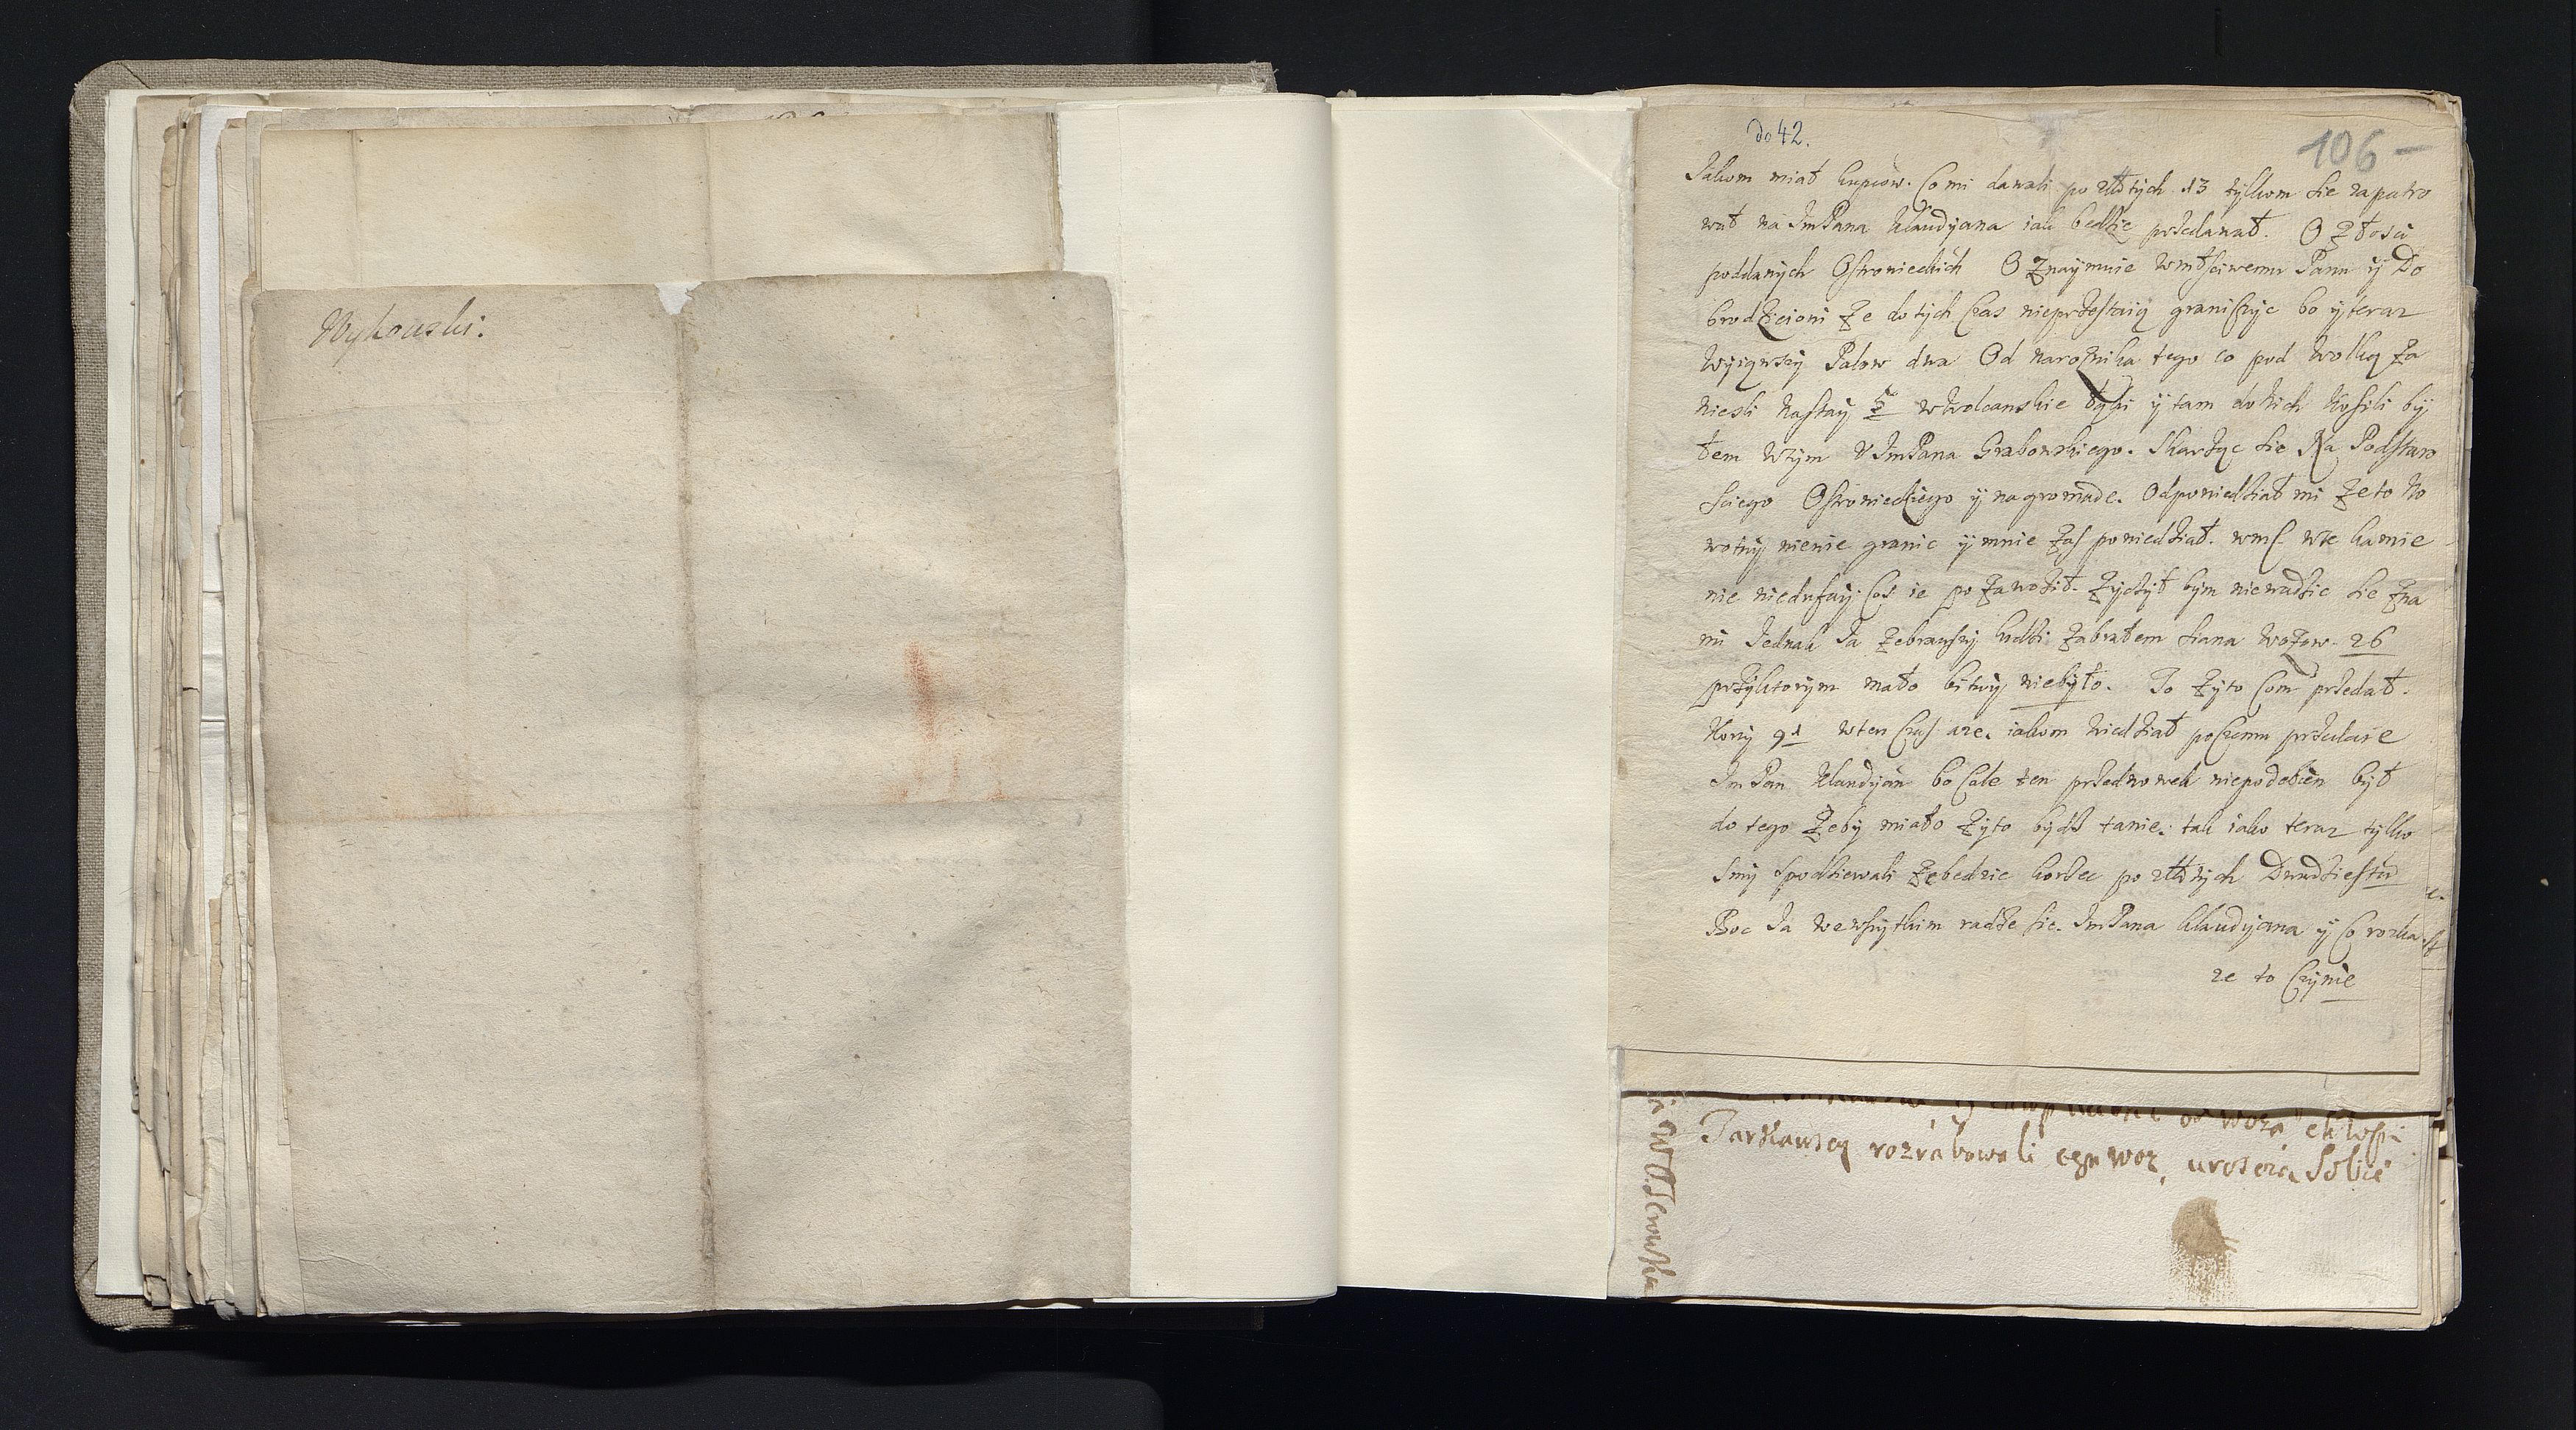 Wykowski.
do 42.
106 -
Jakom miał kupcow. Co mi dawali po złłtych 13 tylkom sie zapatro
wał na JmPana Klaudyana iak bedzie przedawał. O Złosci
poddanych Ostronieckich O Znaymuie wmłsciwemu Panu ÿ Do
brodzieiowi Ze do tych Czas nieprzestaią graniczyc bo ÿ teraz
Wyiąwszy Palow dwa Od naroznika tego co pod Wolką Za
niesli ÿ tam do nich kosili bÿ
łem W tym V JmPana Grabowskiego. Skarżąc sie Na Podstaro
sciego Ostronieckiego ÿ na gromade. Odpowiedział mi Ze to No
wotny niewie granic ÿ mnie Zas powiedział. wmſ w te kamie
nie niedufay. Cos ie po Zawoził. Zyczył bym niewadzic sie Zna
mi Jednak Ja Zebrawszy ludzi Zabrałem siana Wozow. 26
przyktorym mało bitwy niebyło. To Zyto Com przedał.
wten Czas aze. iakom wiedział poczemu przedaie
Jm Pan Klaudyan bo Cale ten przednowek niepodobien był
do tego Zeby miało Zyto bydz tanie. tak iako teraz tylko
smy spodziewali Ze bedzie korzec po złłtych Dwudziestu
Boc Ja wewszytkim radze sie. JmPana Klaudyana ÿ Co rozka
ze to Czynie
woza chłopi
Tarskawscy rozrabowali woz, uroscia Sobie